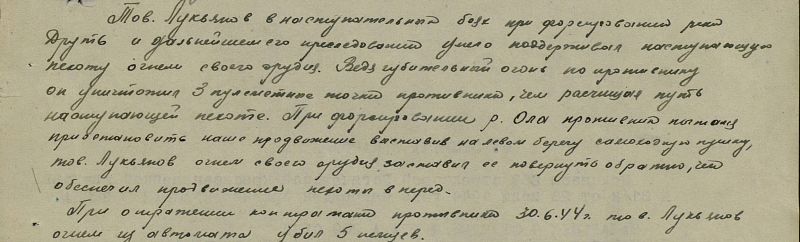 Тов. Лукьянов в наступательных боях при форсировании реки
Друть и дальнейшем его преследовании умело поддерживал наступающую
пехоту огнем своего орудия. Ведя губительный огонь по противнику
он уничтожил 3 пулеметные точки противника, чем расчищал путь
наступающей пехоте. При форсировании р. Ола противник пытался
приостановить наше продвижение выставив на левом берегу самоходную пушку,
тов. Лукьянов огнем своего орудия заставил ее повернуть обратно, что
обеспечил продвижение пехоты вперед.
При отражении контратаки противника 30.6.44г. тов. Лукьянов
огнем из автомата убил 5 немцев.